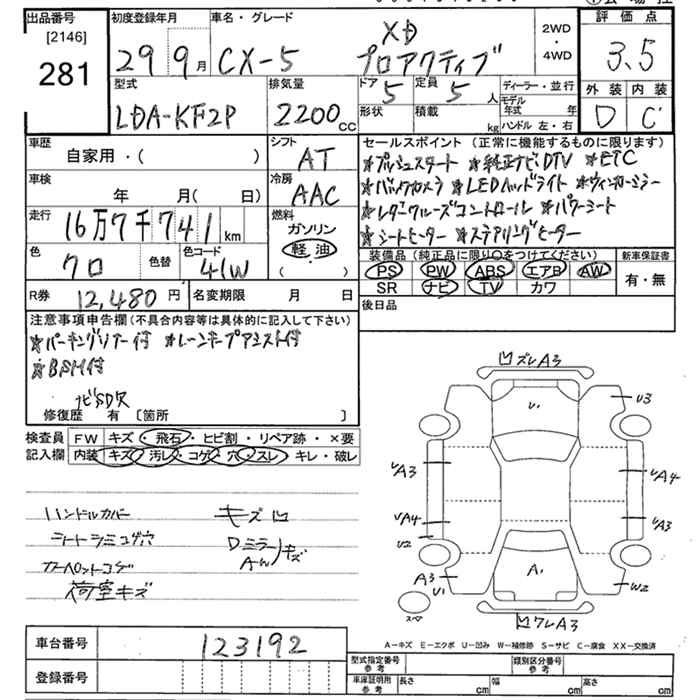 出品番号 初度登録年月 車名・グレード 評価点
[2146]
281
29 9月 CX-5 XD プロアクティブ 2WD・4WD 3.5
型式 排気量 ドア 定員 ディーラー・並行 外装 内装
LDA-KF2P 2200cc 5 5人 モデル年式 年 D C
形状 積載 kg ハンドル 左・右
車歴 シフト セールスポイント（正常に機能するものに限ります）
自家用・( ) AT ★プッシュスタート ★純正ナビDTV ★ETC
車検 冷房 ★バックカメラ ★LEDヘッドライト ★ウィンカーミラー
年 月( 日) AAC ★レダークルーズコントロール ★パワーシート
走行 燃料 ★シートヒーター ★ステアリングヒーター
16万7千741km ガソリン
軽油
( )
色 色替 色コード 装備品（純正品に限り○をつけてください） 新車保証書
クロ 41W PS PW ABS エアB AW 有・無
SR ナビ TV カワ
R券 12,480円 名変期限 月 日 後日品
注意事項申告欄（不具合内容等は具体的に記入して下さい）
★パーキングソナー付 ★レーンキープアシスト付
★BSM付
ナビSD欠
修復歴 有 〔箇所 〕
検査員 FW キズ・飛石・ヒビ割・リペア跡・×要
記入欄 内装 キズ・汚レ・コゲ・穴・スレ・キレ・破レ
ハンドルカバー キズ凹
シートシミコゲ穴 Dミラーキズ
カーペットコゲ AW
荷室キズ
凹ズレA3
U1 U3
UA3 UA4
UA4 UA3
U2
A3 A1 W2
U1
スペア 凹ワレA3
A－キズ E－エクボ U－凹み W－補修跡 S－サビ C－腐食 XX－交換済
車台番号 123192
登録番号
型式指定番号 参考 類別区分番号 参考
車庫証明用 参考 長さ cm 幅 cm 高さ cm